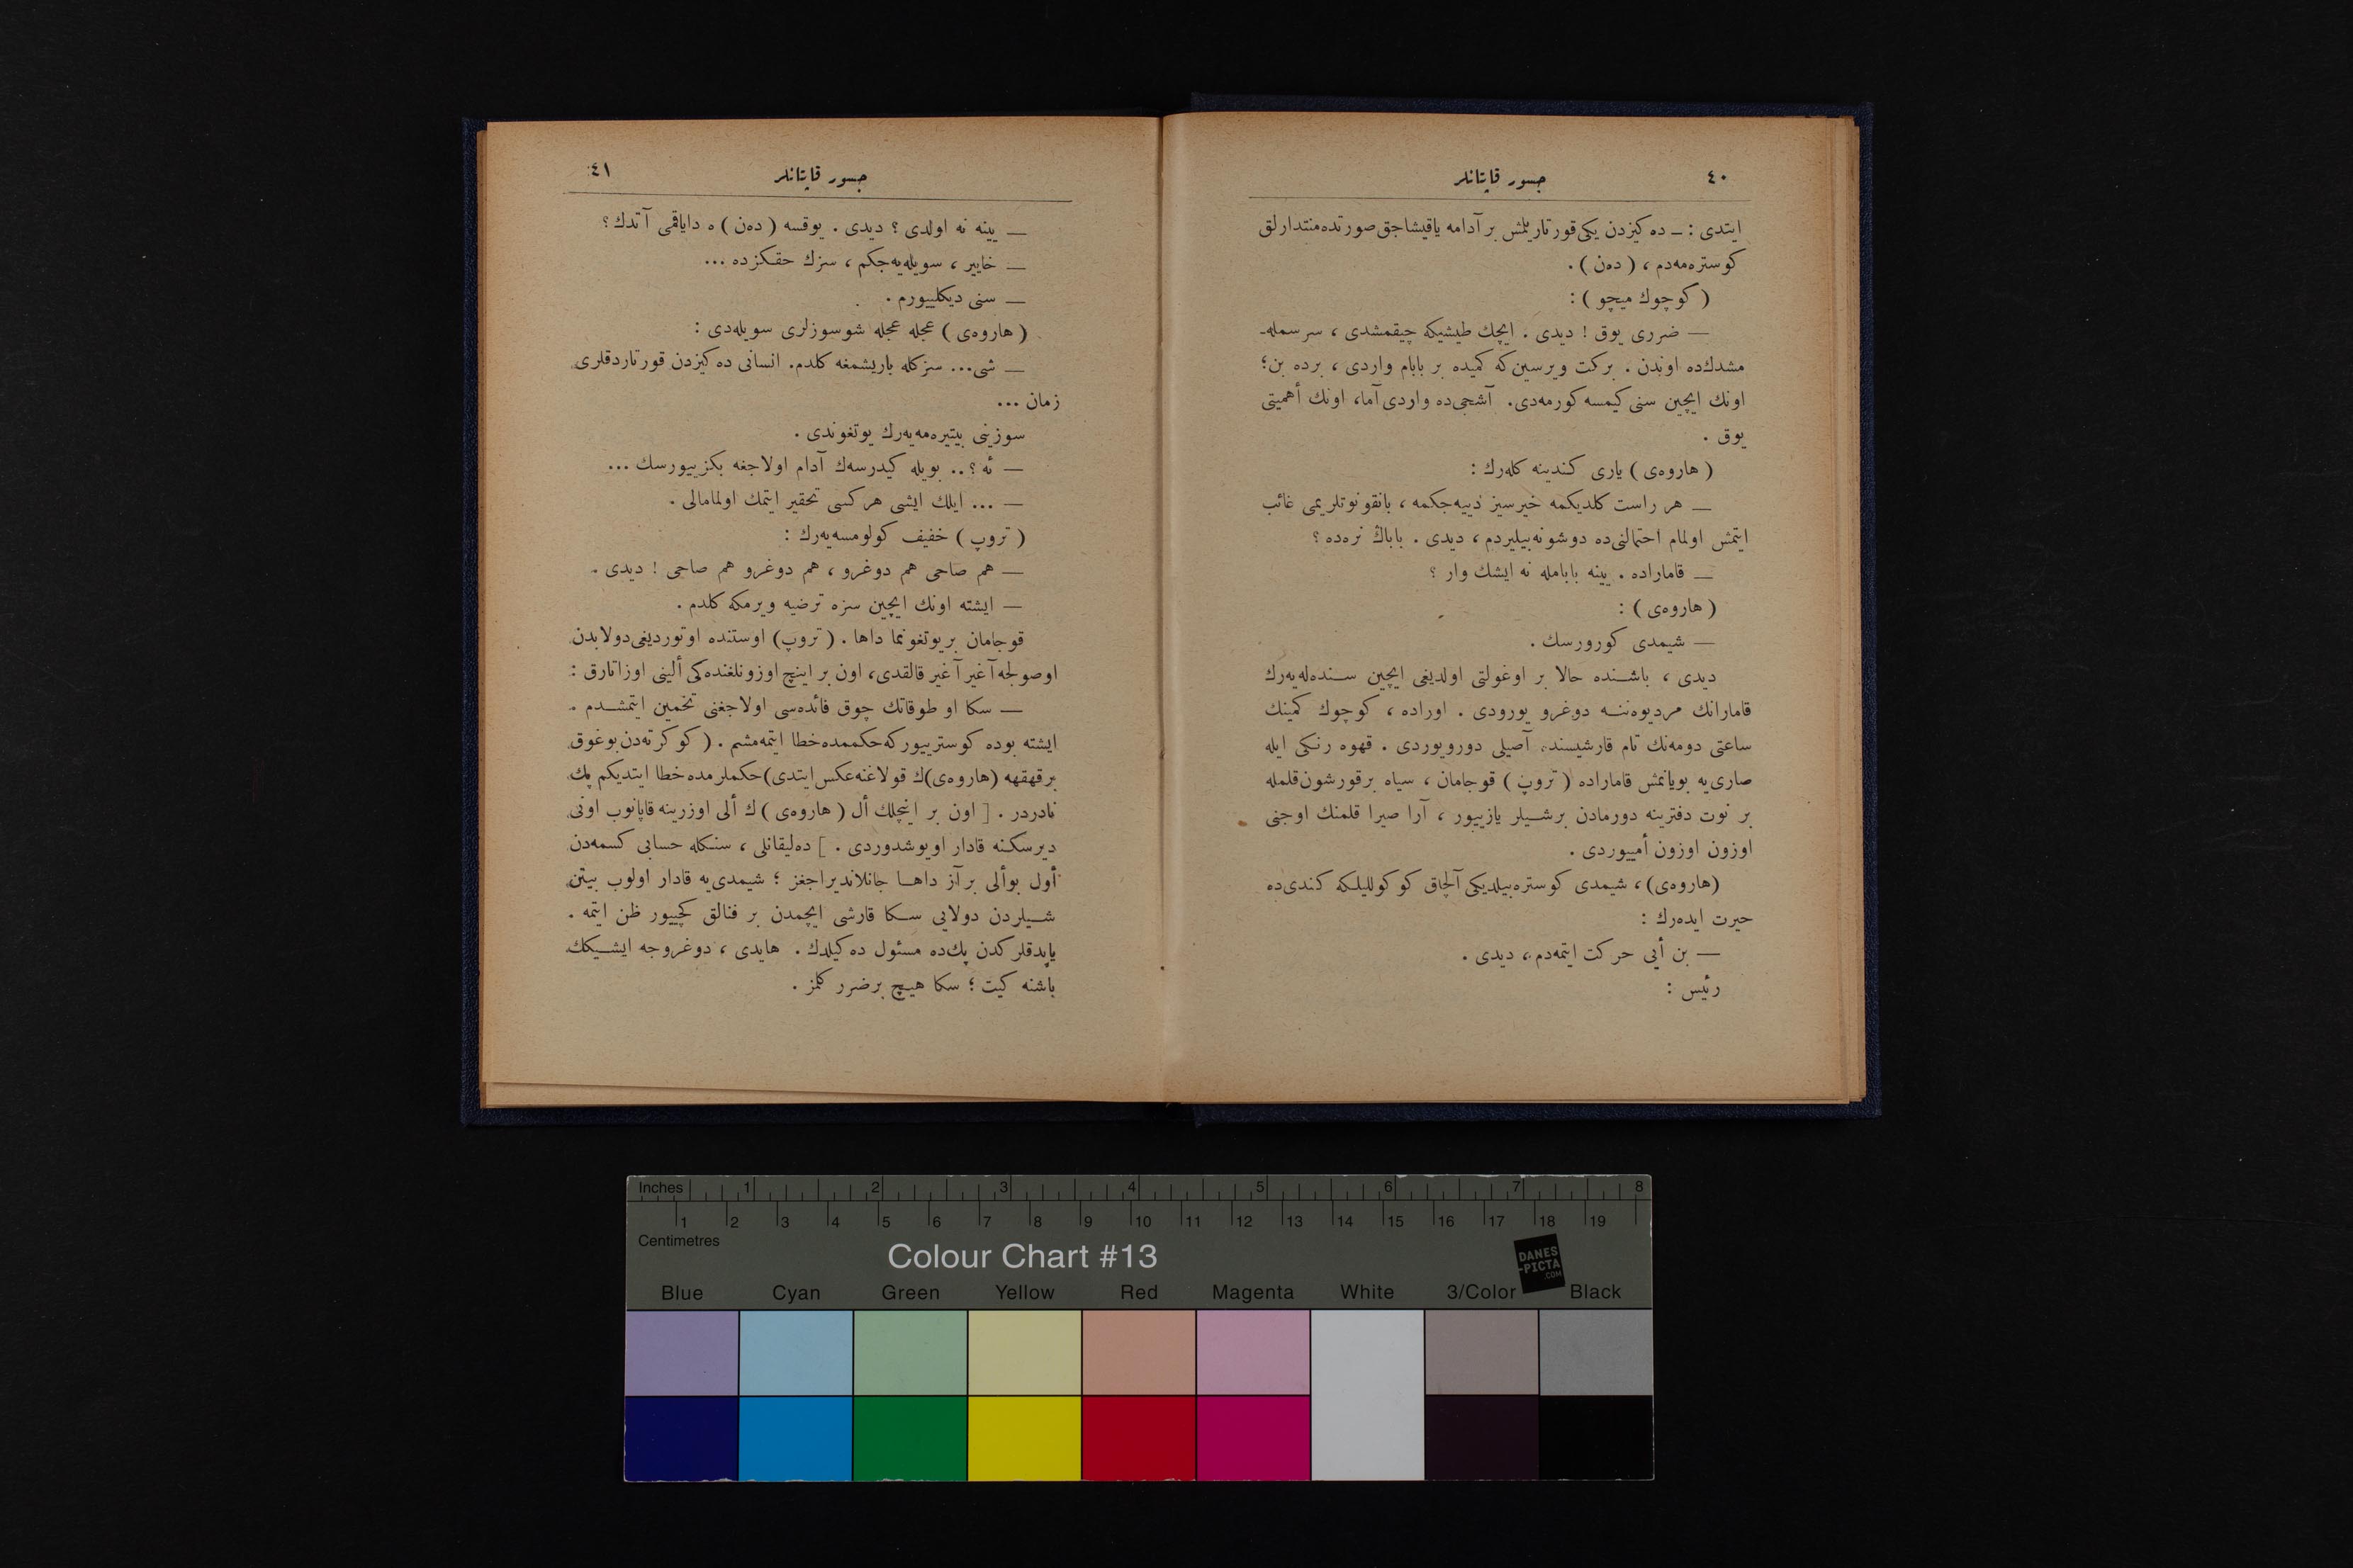 ٤٠
جسور قاپتانلر
ایتدی : ـ ده‌كیزدن یكی قورتاریلمش بر آدامه یاقیشاجق صورتده منتدارلق
كوستره‌مه‌دم ، (ده‌ن) .
( كوچوك میچو ) :
— ضرری یوق ! دیدی . ایچك طیشیكه چیقمشدی ، سرسمله‌ـ
مشدك‌ده اوندن . بركت ویرسین كه كمیده بر بابام واردی ، برده بن ؛
اونك ایچین سنی كیمسه كورمه‌دی. آشجی‌ده واردی آما، اونك أهمیتی
یوق .
( هاروه‌ی ) یاری كندینه كله‌رك :
— هر راست كلدیكمه خیرسیز دییه‌جكمه ، بانقونوتلریمی غائب
ایتمش اولمام احتمالنی‌ده دوشونه‌بیلیردم ، دیدی . باباڭ نره‌ده ؟
— قاماراده . یینه بابامله نه ایشك وار ؟
( هاروه‌ی ) :
— شیمدی كورورسك .
دیدی ، باشنده حالا بر اوغولتی اولدیغی ایچین سنده‌له‌یه‌رك
قامارانك مردیوه‌ننه دوغرو یورودی . اوراده ، كوچوك كمینك
ساعتی دومه‌نك تام قارشیسنده آصیلی دورویوردی . قهوه رنكی ایله
صاری‌یه بویانمش قاماراده ( تروپ ) قوجامان ، سیاه برقورشون قلمله
بر نوت دفترینه دورمادن برشیلر یازییور ، آرا صیرا قلمنك اوجنی
اوزون اوزون أمییوردی .
(هاروه‌ی) ، شیمدی كوستره‌بیلدیكی آلچاق كوكوللیلكه كندی‌ده
حیرت ایده‌رك :
— بن أیی حركت ایتمه‌دم ، دیدی .
رئیس :
٤١
جسور قاپتانلر
— یینه نه اولدی ؟ دیدی . یوقسه (ده‌ن) ه دایاقمی آتدك ؟
— خاییر ، سویله‌یه‌جكم ، سزك حقكزده ...
— سنی دیكلییورم .
( هاروه‌ی ) عجله عجله شو سوزلری سویله‌دی :
— شی... سزكله باریشمغه كلدم. انسانی ده‌كیزدن قورتاردقلری
زمان ...
سوزینی بیتیره‌مه‌یه‌رك یوتغوندی .
— ئه ؟.. بویله كیدرسه‌ك آدام اولاجغه بكزییورسك ...
— ... ایلك ایشی هر كسی تحقیر ایتمك اولمامالی .
( تروپ ) خفیف كولومسه‌یه‌رك :
— هم صاحی هم دوغرو ، هم دوغرو هم صاحی ! دیدی .
— ایشته اونك ایچین سزه ترضیه ویرمكه كلدم .
قوجامان بریوتغونما داها . ( تروپ ) اوستنده اوتوردیغی دولابدن
اوصولجه آغیر آغیر قالقدی، اون بر اینچ اوزونلغنده‌كی ألینی اوزاتارق :
— سكا او طوقاتك چوق فائده‌سی اولاجغنی تخمین ایتمشدم .
ایشته بوده كوسترییور كه حكممده خطا ایتمه‌مشم . ( كوكرته‌دن بوغوق
برقهقهه (هاروه‌ی)ك قولاغنه عكس ایتدی) حكملرمده خطا ایتدیكم پك
نادردر . [ اون بر اینچلك أل ( هاروه‌ی ) ك ألی اوزرینه قاپانوب اونی
دیرسكنه قادار اویوشدوردی . ] ده‌لیقانلی ، سنكله حسابی كسمه‌دن
أول بو ألی برآز داها جانلاندیراجغز ؛ شیمدی‌یه قادار اولوب بیتن
شیلردن دولایی سكا قارشی ایچمدن بر فنالق كچییور ظن ایتمه .
یاپدقلركدن پك‌ده مسئول ده‌كیلدك . هایدی ، دوغروجه ایشیكك
باشنه كیت ؛ سكا هیچ برضرر كلمز .
Inches 1 2 3 4 5 6 7 8
1 2 3 4 5 6 7 8 9 10 11 12 13 14 15 16 17 18 19
Centimetres
Colour Chart #13
DANES
-PICTA
.COM
Blue Cyan Green Yellow Red Magenta White 3/Color Black